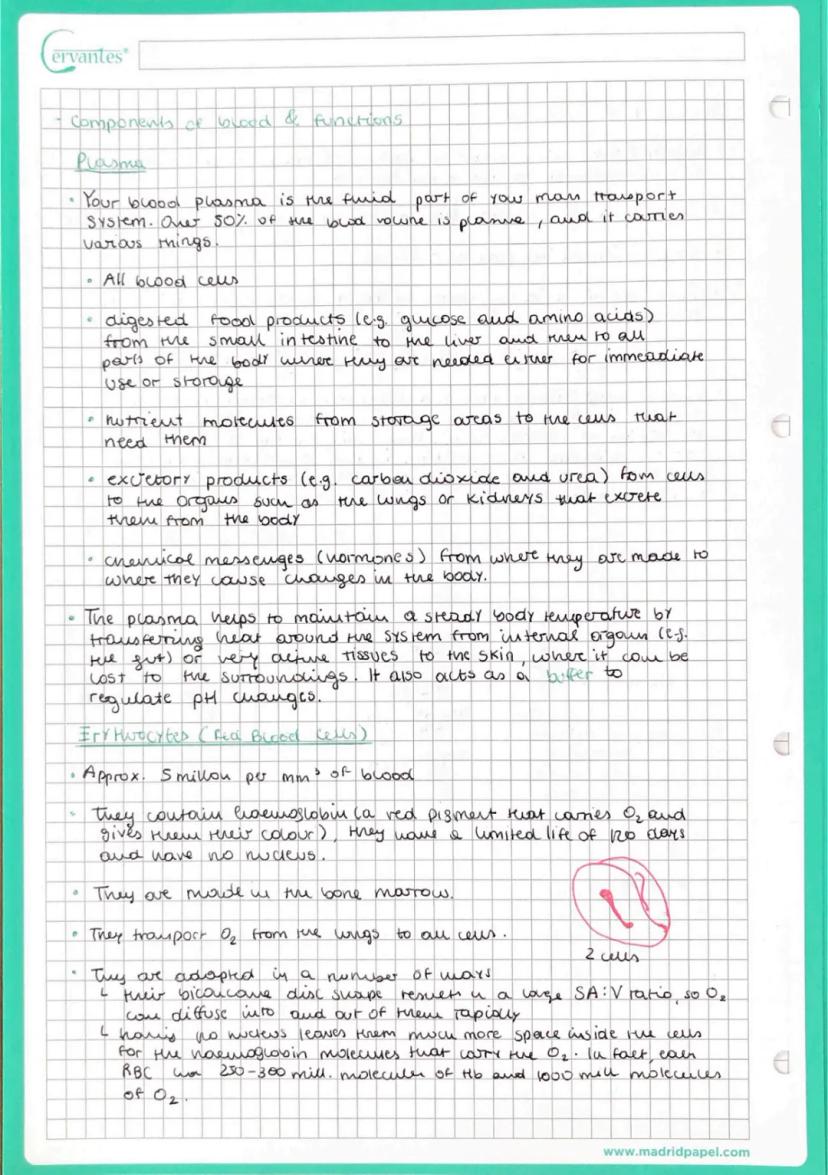 Cervantes®
- Components of blood & functions
Plasma
• Your blood plasma is the fluid part of your main transport
system. Over 50% of the blood volume is plasma, and it carries
various things.
• All blood cells
• digested food products (e.g. glucose and amino acids)
from the small intestine to the liver and then to all
parts of the body where they are needed either for immeadiate
use or storage
• nutrient molecules from storage areas to the cells that
need them
• excretory products (e.g. carbon dioxide and urea) from cells
to the organs such as the lungs or kidneys that excrete
them from the body
• chemical messenges (hormones) from where they are made to
where they cause changes in the body.
• The plasma helps to maintain a steady body temperature by
transferring heat around the system from internal organs (e.g.
the gut) or very active tissues to the skin, where it can be
lost to the surroundings. It also acts as a buffer to
regulate pH changes.
Erythrocytes (Red Blood Cells)
• Approx. 5 millon per mm³ of blood
• They contain haemoglobin (a red pigment that carries O₂ and
gives them their colour), they have a limited life of 120 days
and have no nucleus.
• They are made in the bone marrow.
• They transport O₂ from the lungs to all cells.
2 cells
• They are adapted in a number of ways
↳ their biconcave disc shape results in a large SA:V ratio, so O₂
can diffuse into and out of them rapidly
↳ having no nucleus leaves them much more space inside the cells
for the haemoglobin molecules that carry the O₂. In fact, each
RBC has 250-300 mill. molecules of Hb and 1000 mill molecules
of O₂.
www.madridpapel.com